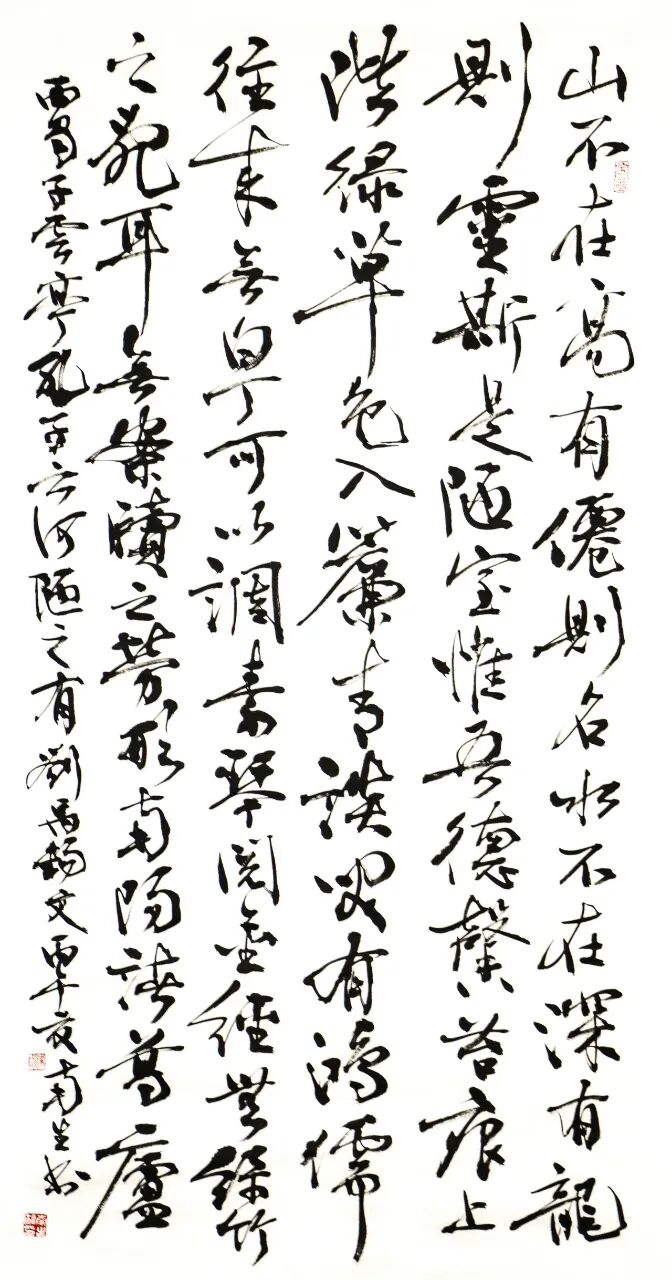 山不在高有僊則名水不在深有龍
則靈斯是陋室惟吾德馨苔痕上
階緑草色入簾青談咲有鴻儒
往来無白丁可以調素琴閲金經無絲竹
之亂耳無案牘之勞形南陽諸葛廬
西蜀子雲亭孔子云何陋之有劉禹錫文丙午南生书